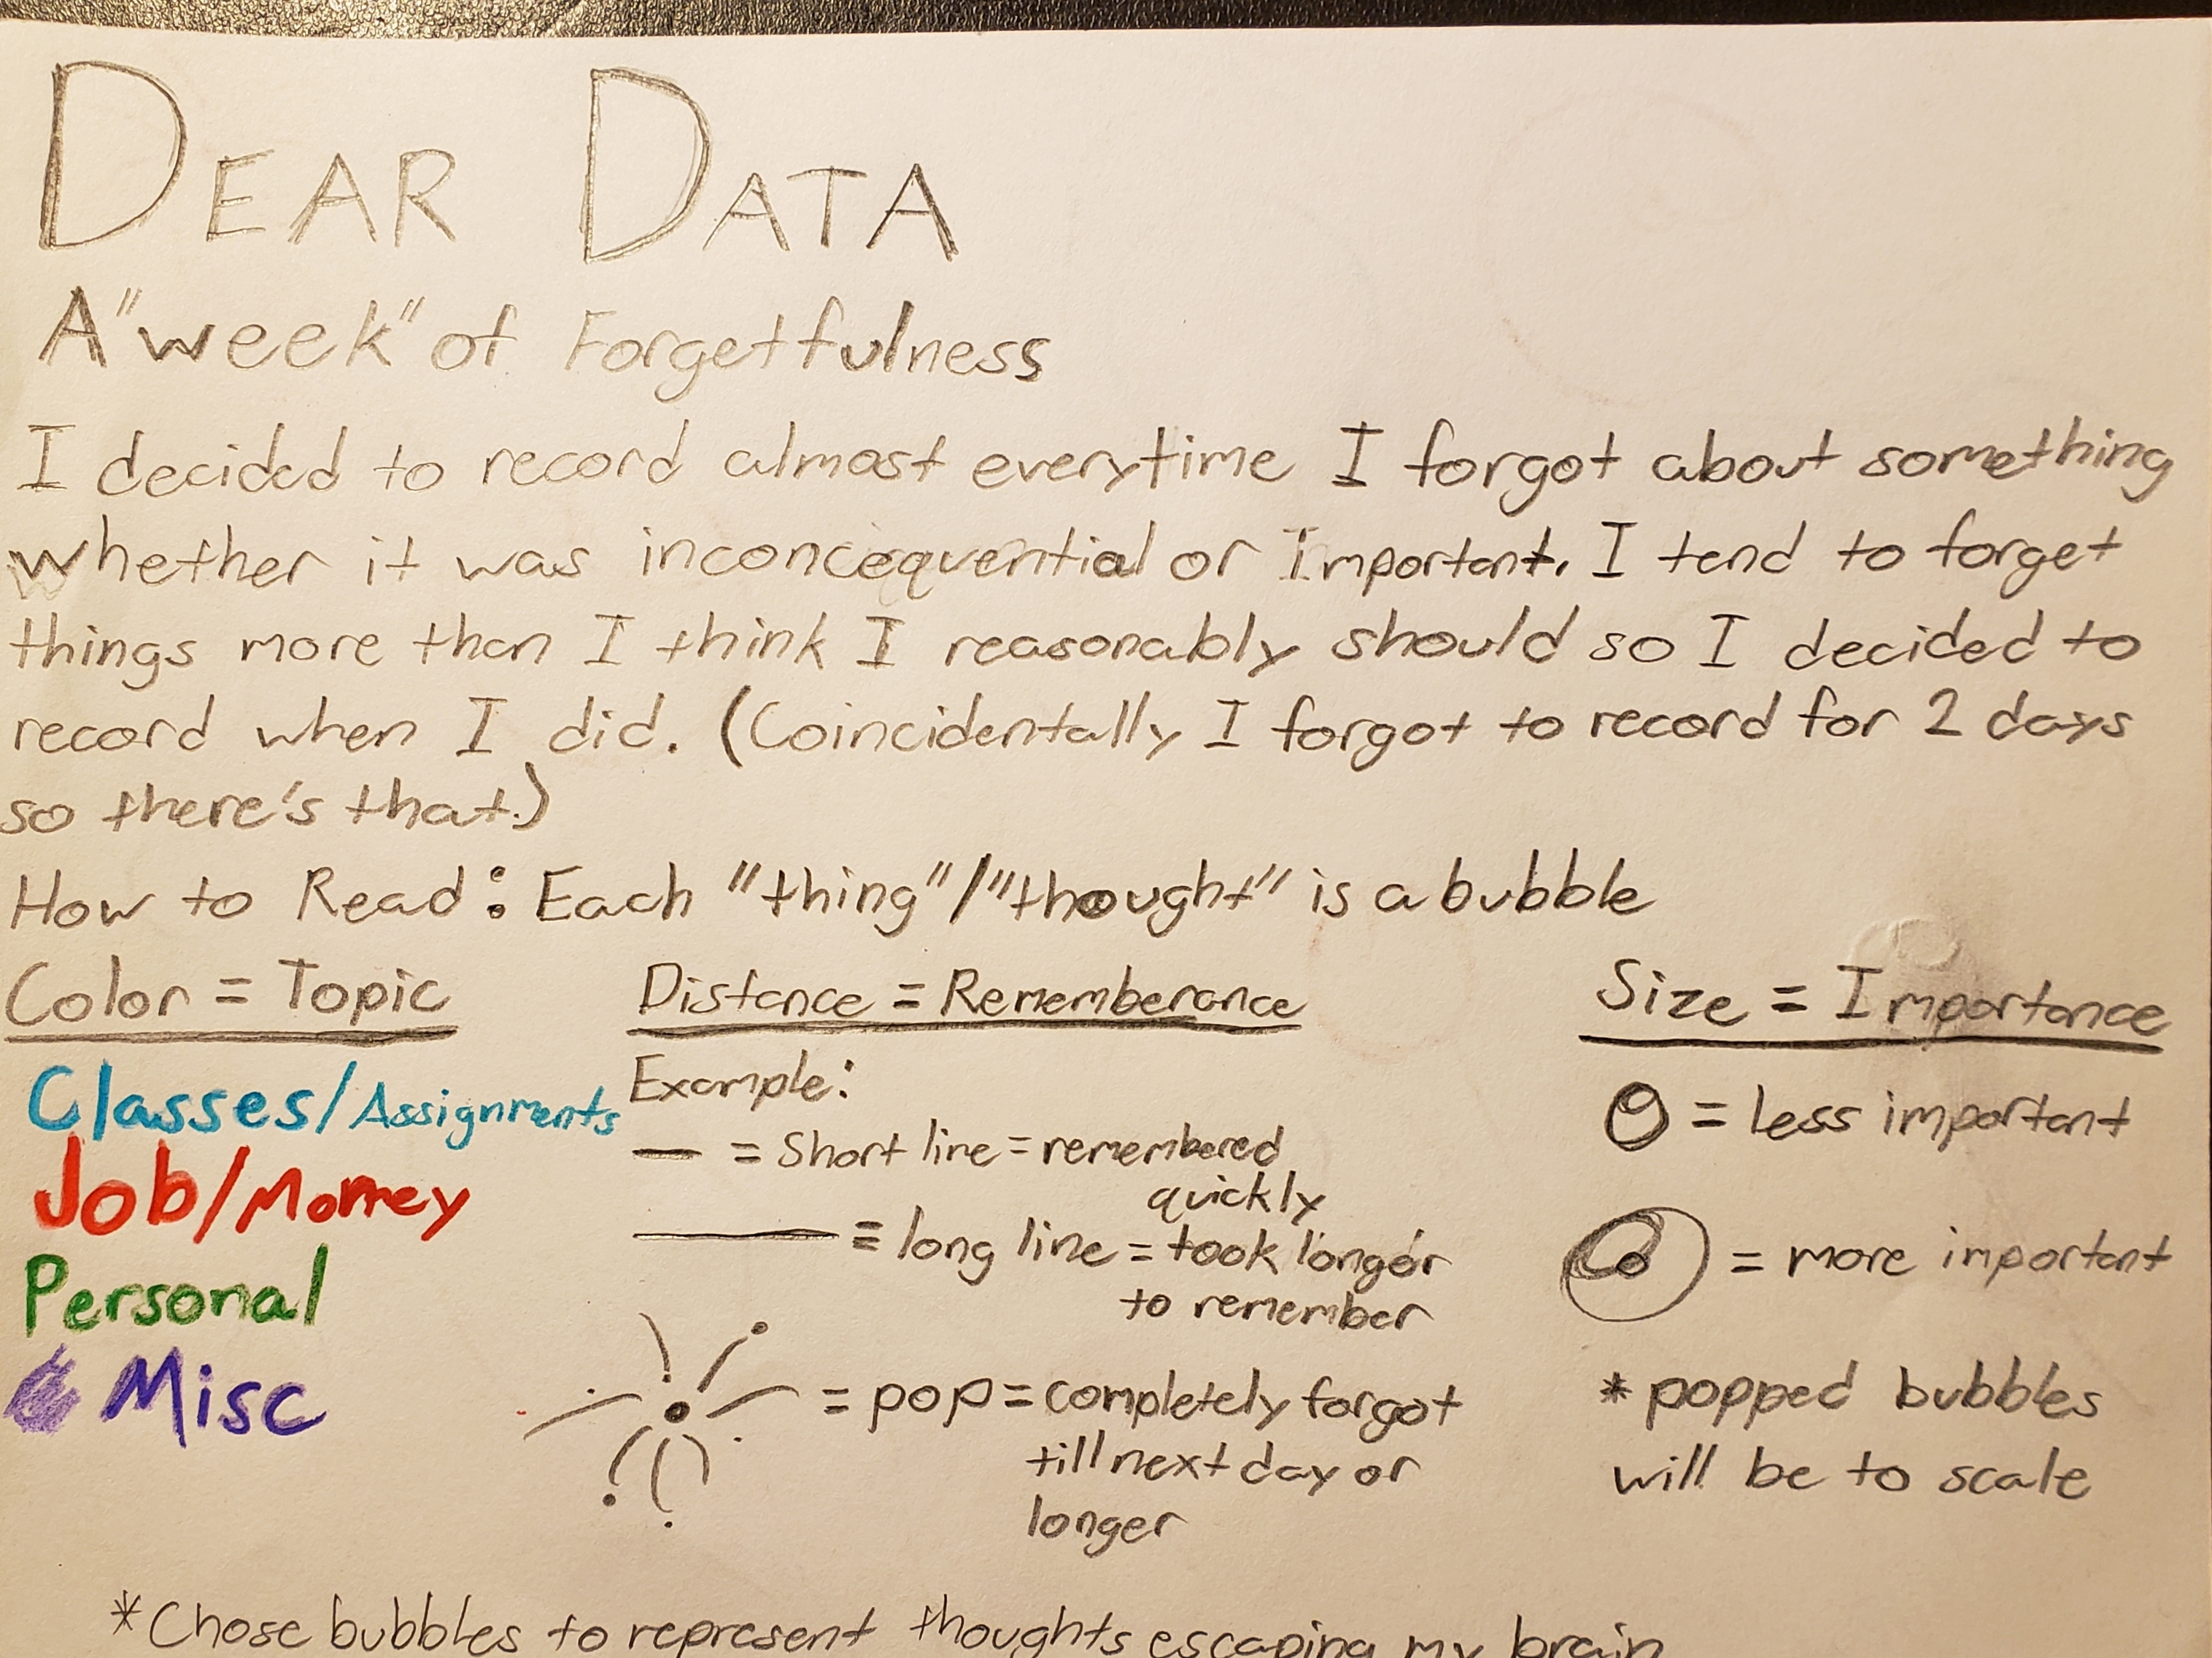 DEAR DATA
A "week" of Forgetfulness
I decided to record almost everytime I forgot about something
whether it was inconcequential or Important. I tend to forget
things more than I think I reasonably should so I decided to
record when I did. (Coincidentally I forgot to record for 2 days
so there's that.)
How to Read: Each "thing"/"thought" is a bubble
Color = Topic
Classes/Assignments
Job/Money
Personal
Misc
Distance = Rememberance
Example:
— = Short line = remembered
quickly
— = long line = took longer
to remember
= pop = completely forgot
till next day or
longer
Size = Importance
= less important
= more important
* popped bubbles
will be to scale
* Chose bubbles to represent thoughts escaping my brain